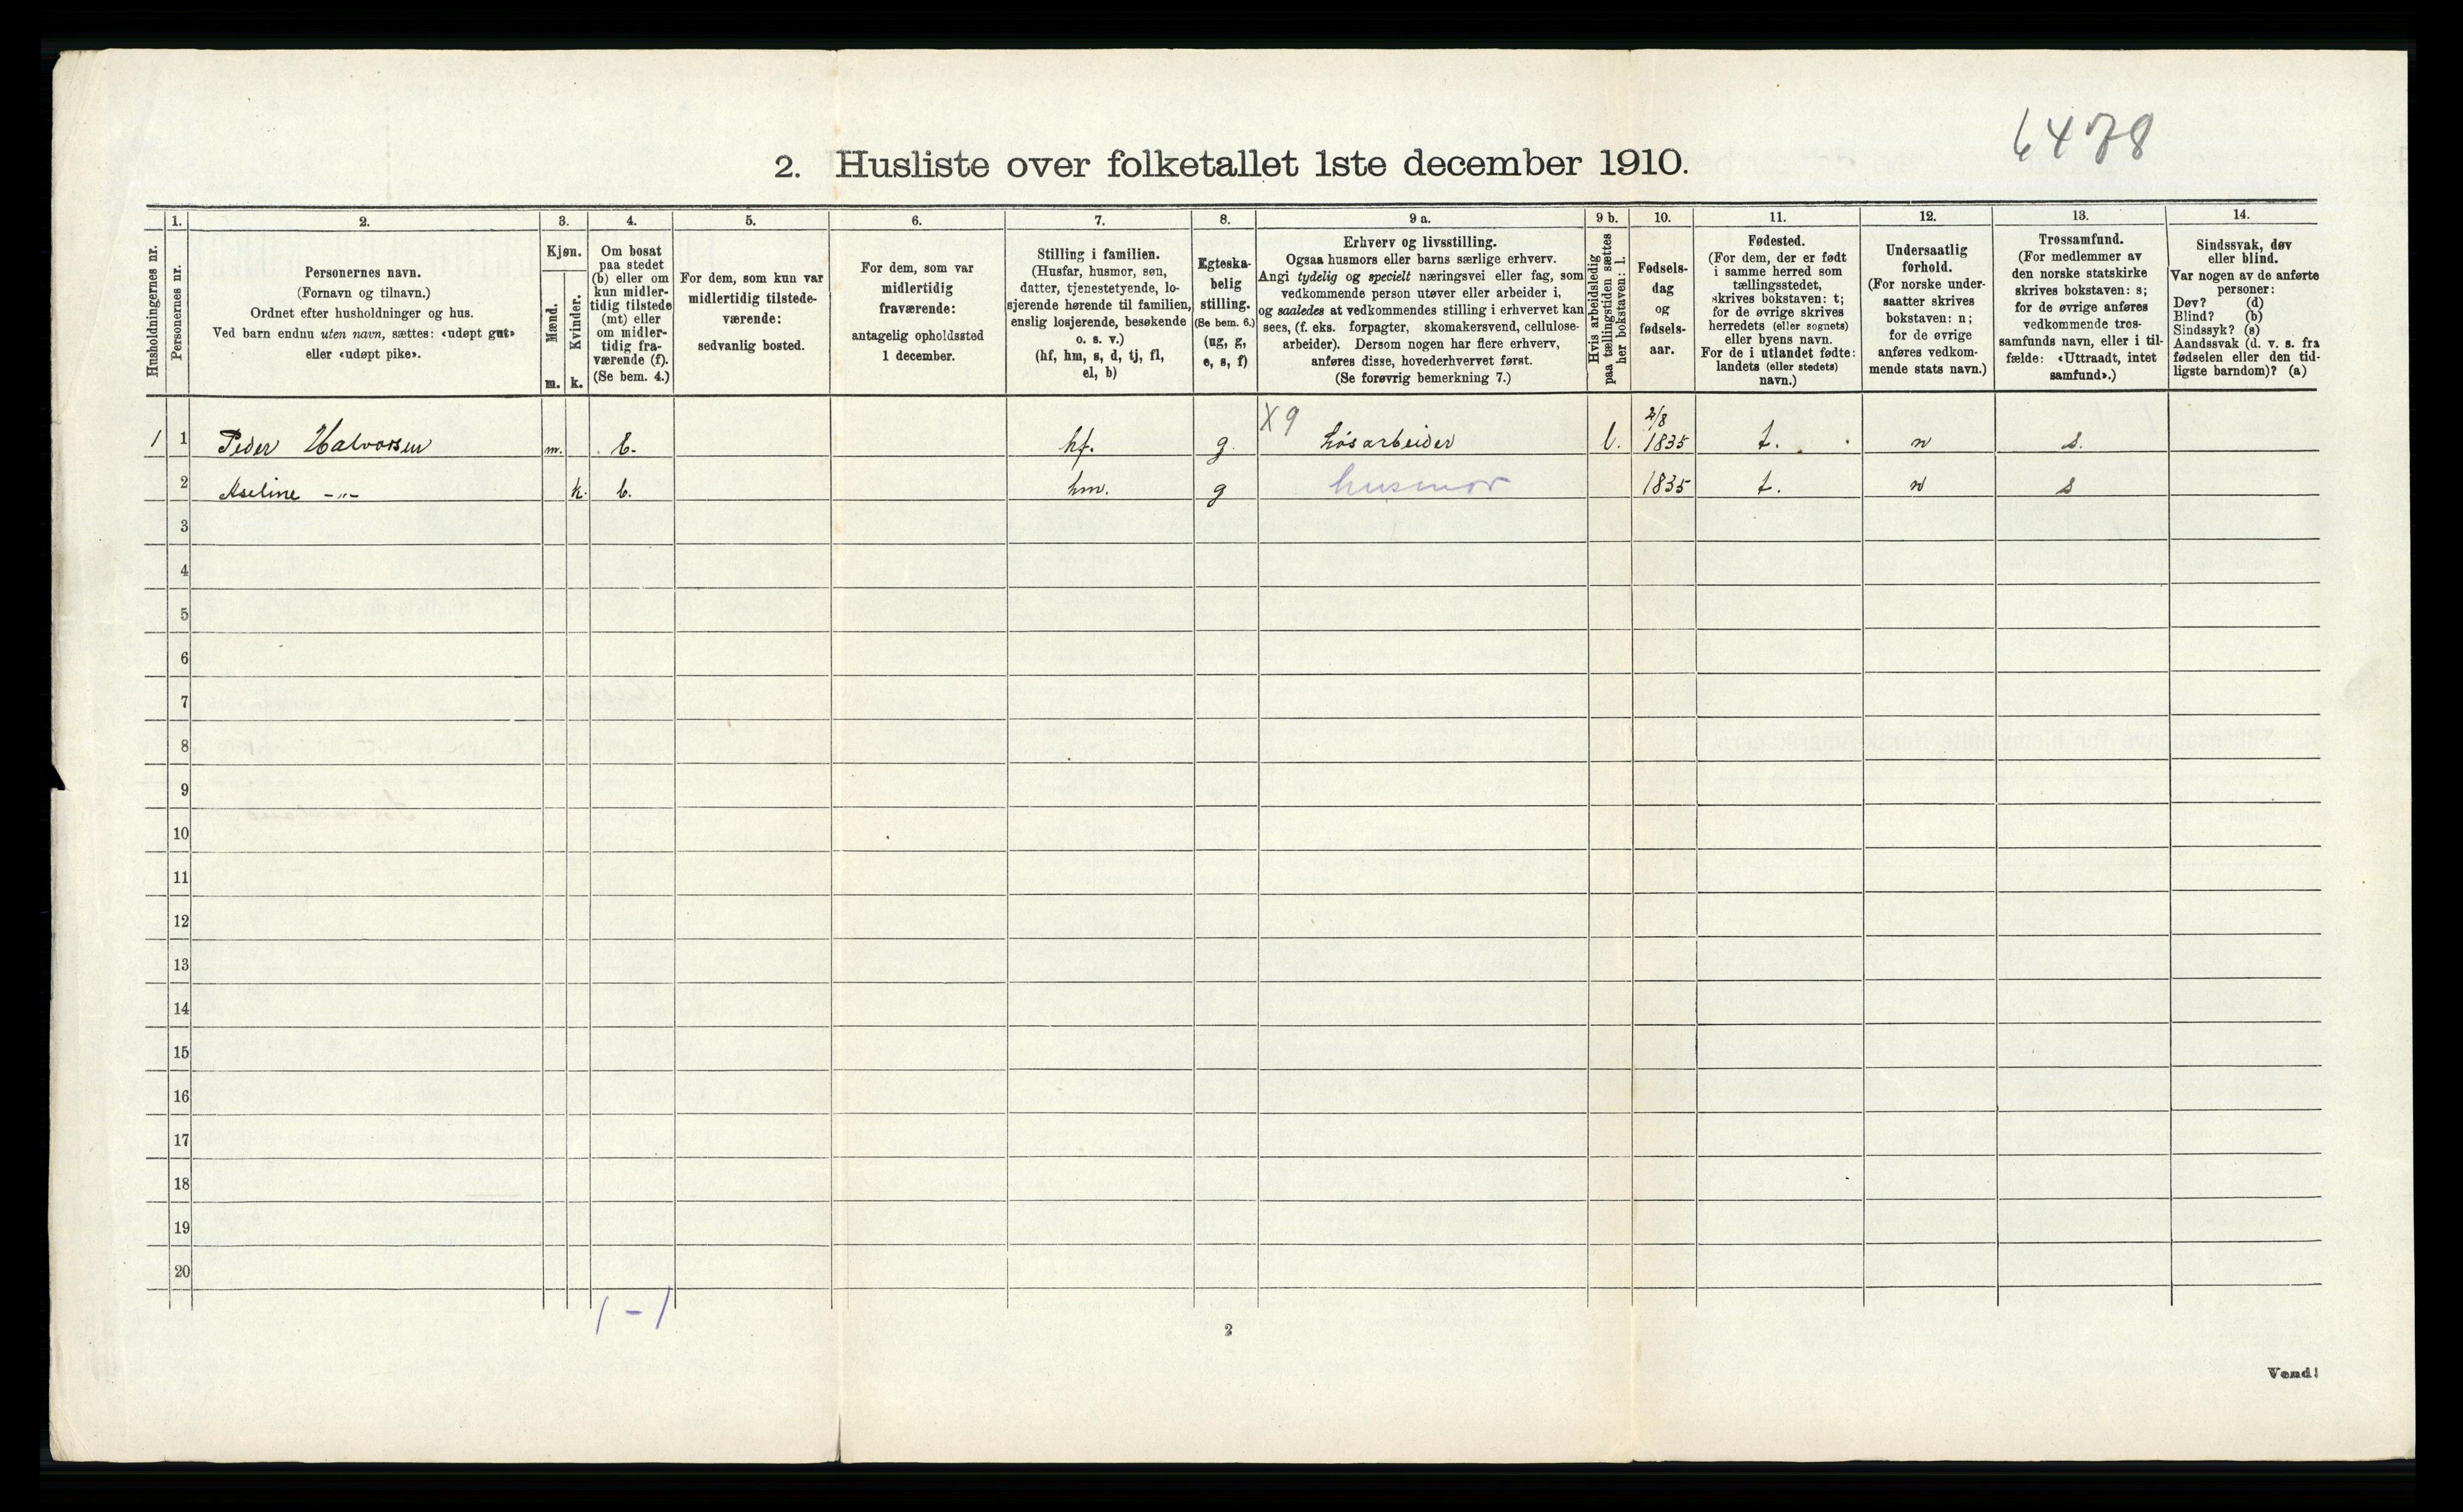 6478
2. Husliste over folketallet 1ste december 1910.
Husholdningernes nr.
1.
Personernes nr.
2.
Personernes navn.
(Fornavn og tilnavn.)
Ordnet efter husholdninger og hus.
Ved barn endnu uten navn, sættes: «udøpt gut»
eller «udøpt pike».
3.
Kjøn.
Mænd.
m.
Kvinder.
k.
4.
Om bosat
paa stedet
(b) eller om
kun midler-
tidig tilstede
(mt) eller
om midler-
tidig fra-
værende (f).
(Se bem. 4.)
5.
For dem, som kun var
midlertidig tilstede-
værende:
sedvanlig bosted.
6.
For dem, som var
midlertidig
fraværende:
antagelig opholdssted
1 december.
7.
Stilling i familien.
(Husfar, husmor, søn,
datter, tjenestetyende, lo-
sjerende hørende til familien,
enslig losjerende, besøkende
o. s. v.)
(hf, hm, s, d, tj, fl,
el, b)
8.
Egteska-
belig
stilling.
(Se bem. 6.)
(ug, g,
e, s, f)
9 a.
Erhverv og livsstilling.
Ogsaa husmors eller barns særlige erhverv.
Angi tydelig og specielt næringsvei eller fag, som
vedkommende person utøver eller arbeider i,
og saaledes at vedkommendes stilling i erhvervet kan
sees, (f. eks. forpagter, skomakersvend, cellulose-
arbeider). Dersom nogen har flere erhverv,
anføres disse, hovederhvervet først.
(Se forøvrig bemerkning 7.)
9 b.
Hvis arbeidsledig
paa tællingstiden sættes
her bokstaven: l.
10.
Fødsels-
dag
og
fødsels-
aar.
11.
Fødested.
(For dem, der er født
i samme herred som
tællingsstedet,
skrives bokstaven: t;
for de øvrige skrives
herredets (eller sognets)
eller byens navn.
For de i utlandet fødte:
landets (eller stedets)
navn.)
12.
Undersaatlig
forhold.
(For norske under-
saatter skrives
bokstaven: n;
for de øvrige
anføres vedkom-
mende stats navn.)
13.
Trossamfund.
(For medlemmer av
den norske statskirke
skrives bokstaven: s;
for de øvrige anføres
vedkommende tros-
samfunds navn, eller i til-
fælde: «Uttraadt, intet
samfund».)
14.
Sindssvak, døv
eller blind.
Var nogen av de anførte
personer:
Døv? (d)
Blind? (b)
Sindssyk? (s)
Aandssvak (d. v. s. fra
fødselen eller den tid-
ligste barndom)? (a)
1 1 Peder Halvorsen m. b. hf. g. X9 Løsarbeider l. 2/8 1835 t. n s.
2 Aseline -„- k. b. hm. g husmor 1835 t. n s
3
4
5
6
7
8
9
10
11
12
13
14
15
16
17
18
19
20
1 - 1
2
Vend!